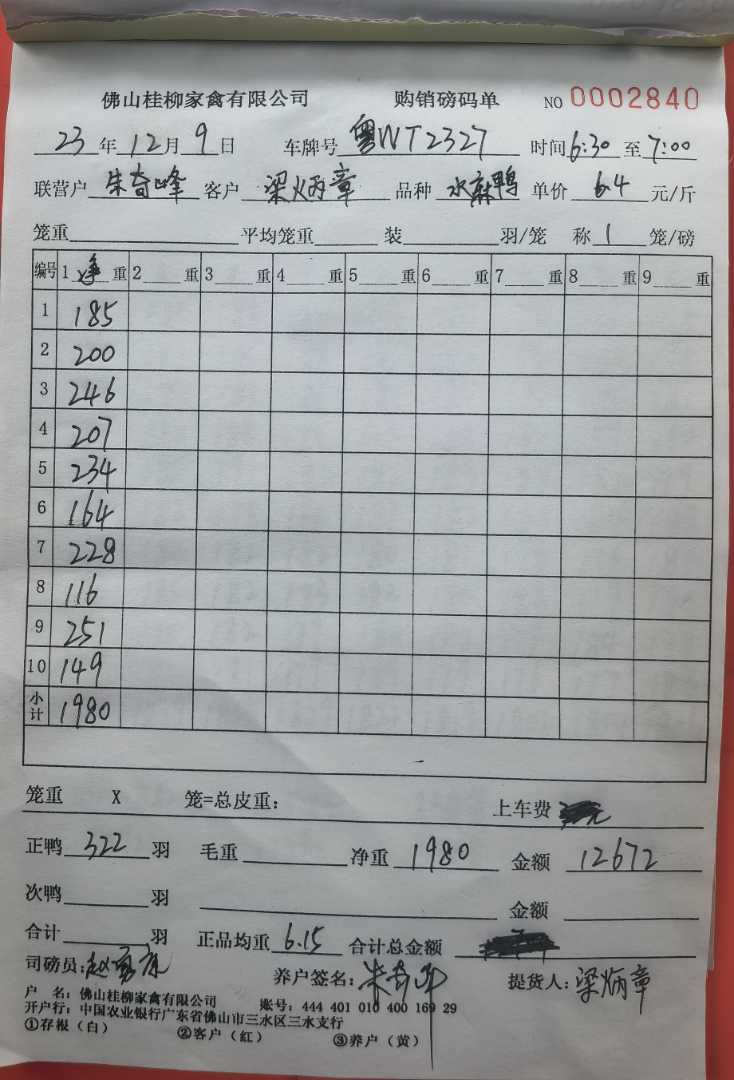 佛山桂柳家禽有限公司 购销磅码单 NO 0002840
23年12月9日 车牌号 粤WT2327 时间6:30至7:00
联营户 朱奇峰 客户 梁炳章 品种 水麻鸭 单价 6.4 元/斤
笼重 平均笼重 装 羽/笼 称 1 笼/磅
编号 1 净 重 2 重 3 重 4 重 5 重 6 重 7 重 8 重 9 重
1 185
2 200
3 246
4 207
5 234
6 164
7 228
8 116
9 251
10 149
小计 1980
笼重 X 笼=总皮重: 上车费
正鸭 322 羽 毛重 净重 1980 金额 12672
次鸭 羽 金额
合计 羽 正品均重 6.15 合计总金额
司磅员: 养户签名: 朱奇 提货人: 梁炳章
户 名: 佛山桂柳家禽有限公司 账号: 444 401 010 400 169 29
开户行: 中国农业银行广东省佛山市三水区三水支行
①存根(白) ②客户(红) ③养户(黄)